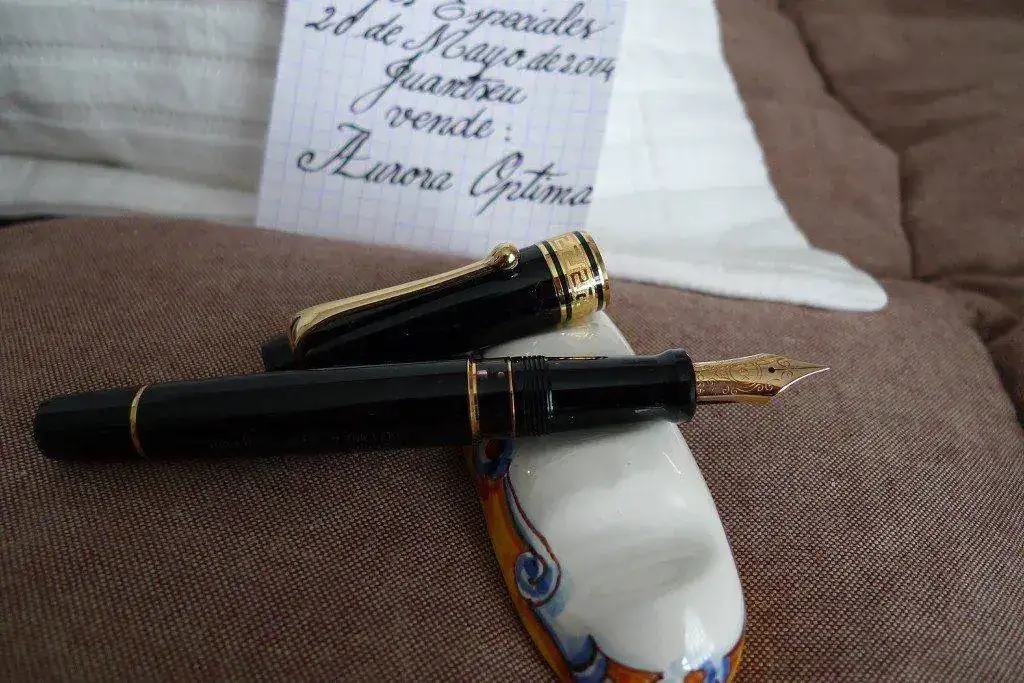 Especiales
20 de Mayo de 2014
Juantxeu
vende :
Aurora Optima